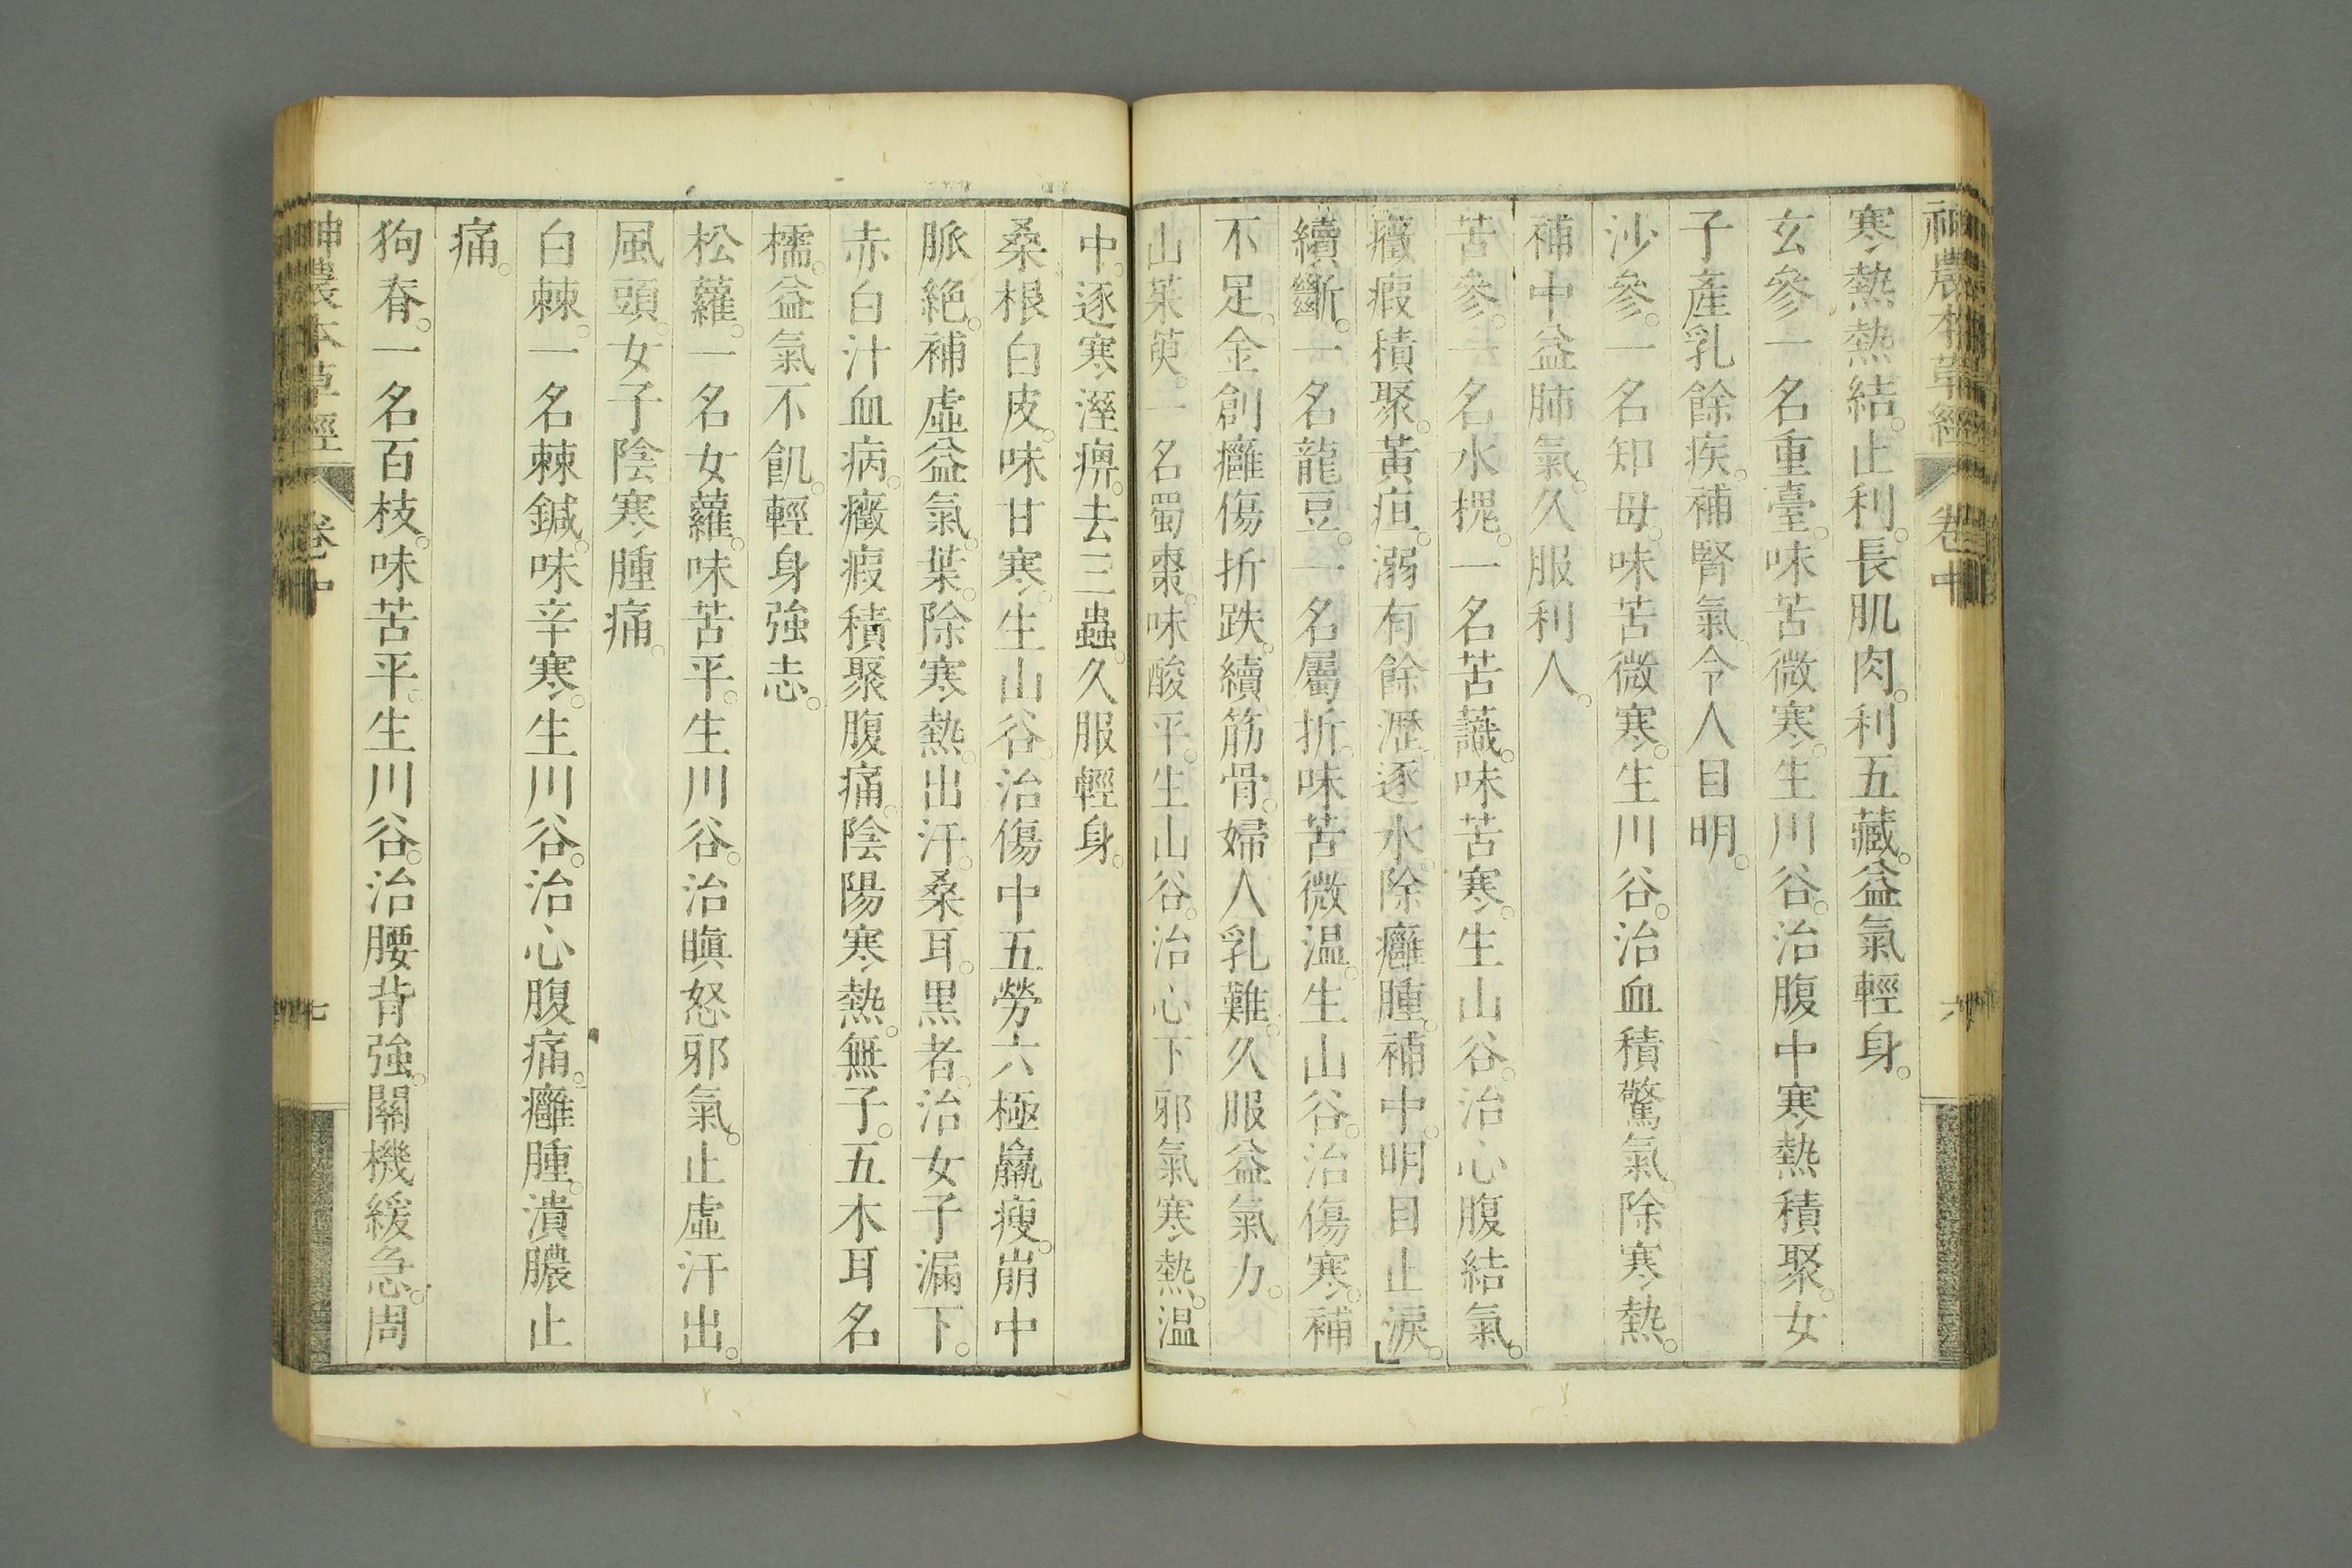 神農本草經 卷中 六
寒熱熱結。止利。長肌肉。利五藏。益氣輕身。
玄參一名重臺。味苦微寒。生川谷。治腹中寒熱積聚。女
子產乳餘疾。補腎氣。令人目明。
沙參。一名知母。味苦微寒。生川谷。治血積驚氣。除寒熱。
補中益肺氣。久服利人。
苦參。一名水槐。一名苦蘵。味苦寒。生山谷。治心腹結氣。
癥瘕積聚。黃疸。溺有餘瀝。逐水。除癰腫。補中。明目止淚。
續斷。一名龍豆。一名屬折。味苦微温。生山谷。治傷寒。補
不足。金創癰傷折跌。續筋骨。婦人乳難。久服益氣力。
山茱萸。一名蜀棗。味酸平。生山谷。治心下邪氣寒熱。温
中。逐寒溼痹。去三蟲。久服輕身。
桑根白皮。味甘寒。生山谷。治傷中五勞六極羸瘦。崩中
脈絕。補虛益氣。葉。除寒熱。出汗。桑耳。黑者。治女子漏下。
赤白汁血病。癥瘕積聚腹痛。陰陽寒熱。無子。五木耳名
檽。益氣不飢。輕身強志。
松蘿。一名女蘿。味苦平。生川谷。治瞋怒邪氣。止虛汗出。
風頭。女子陰寒腫痛。
白棘。一名棘鍼。味辛寒。生川谷。治心腹痛。癰腫。潰膿止
痛。
狗脊。一名百枝。味苦平。生川谷。治腰背強。關機緩急。周
神農本草經 卷中 七